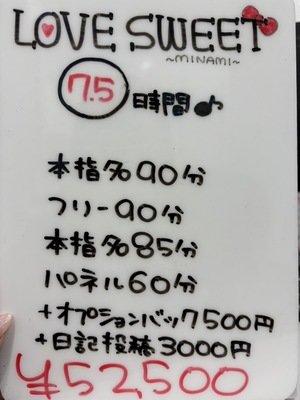 LOVE SWEET
~MINAMI~
7.5時間♪
本指名90分
フリー90分
本指名85分
パネル60分
+オプションバック7500円
+日記投稿3000円
¥52,500